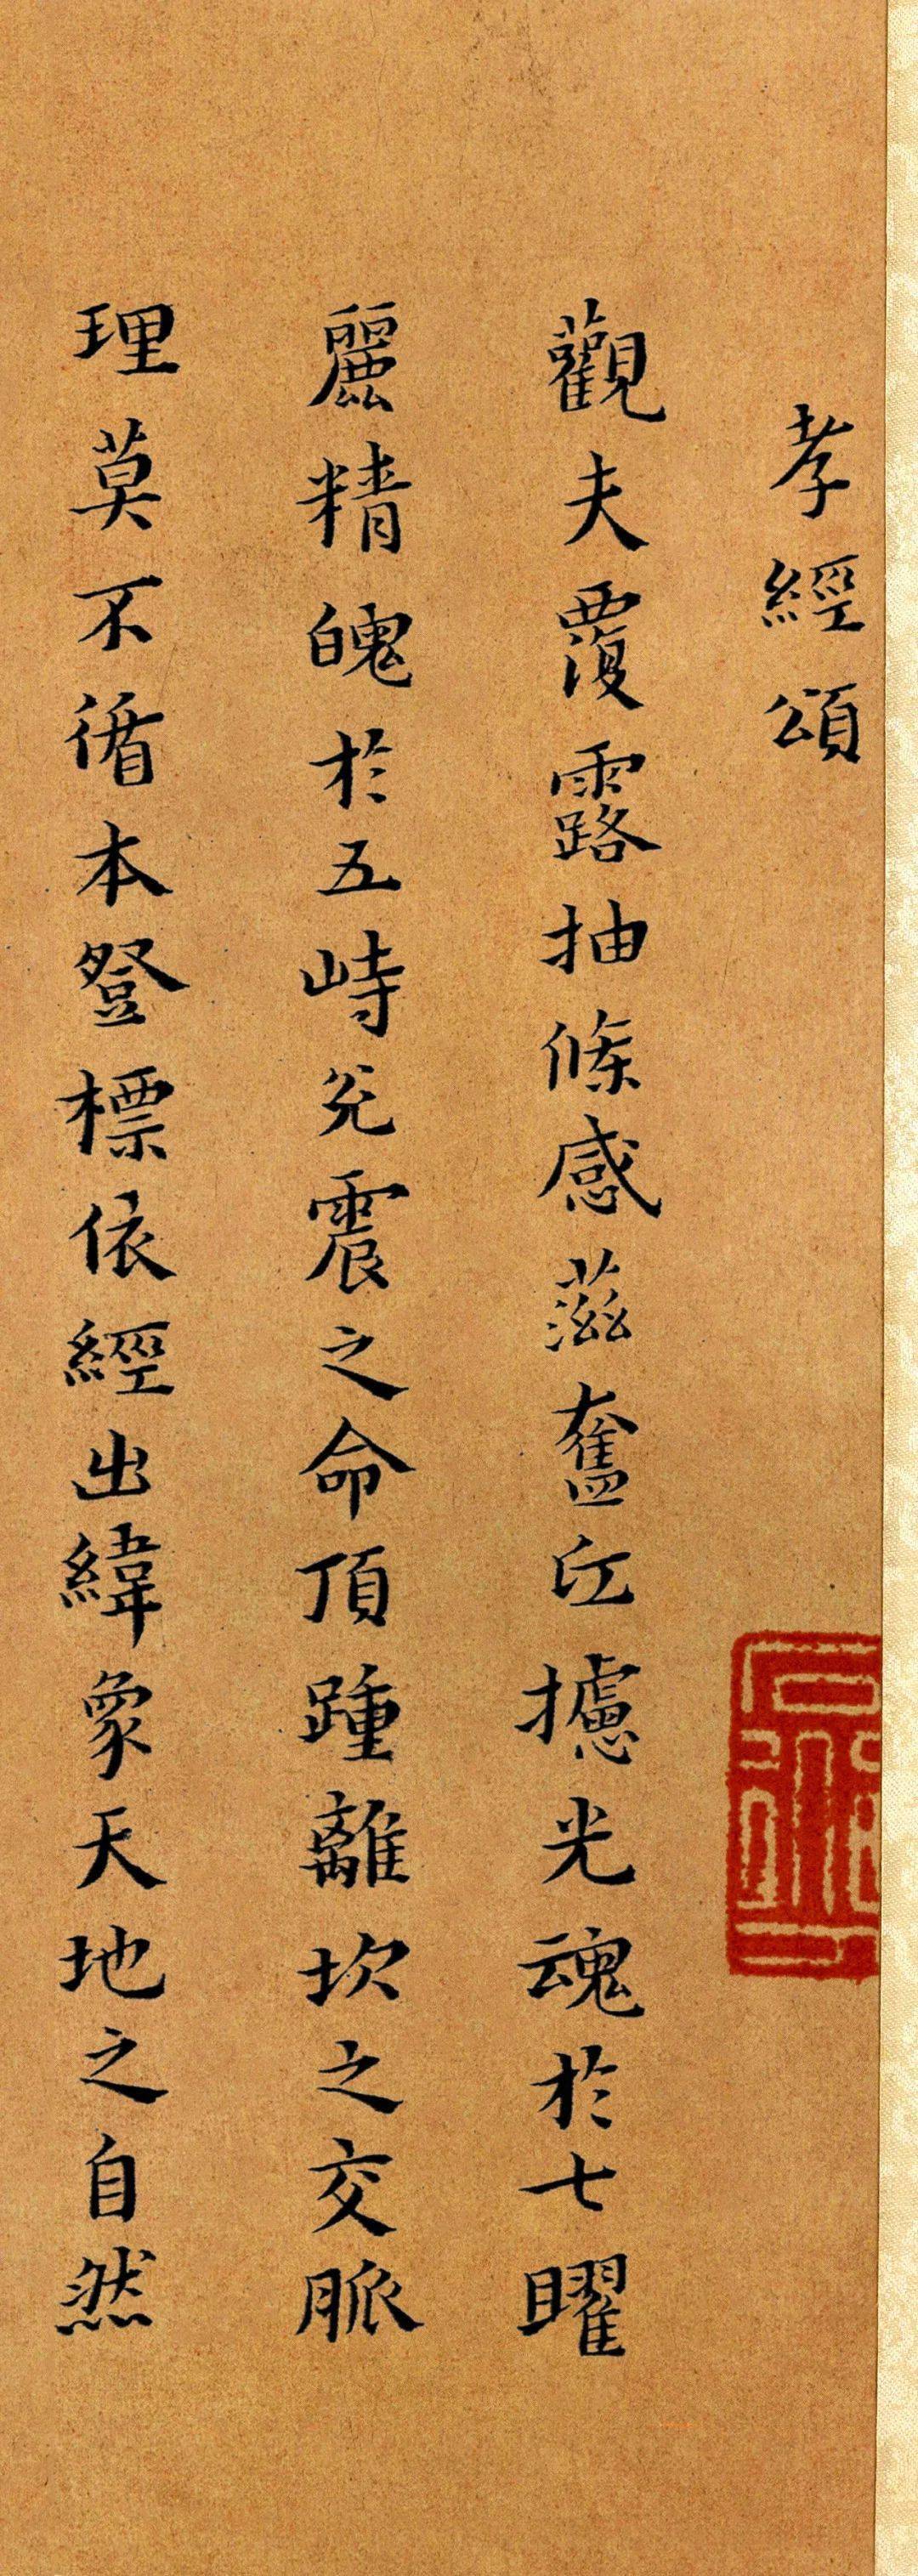 孝經頌
觀夫覆露抽條感滋奮攄光魂於七曜
麗精魄於五峙兊震之命頂踵離坎之交脈
理莫不循本登標依經出緯象天地之自然